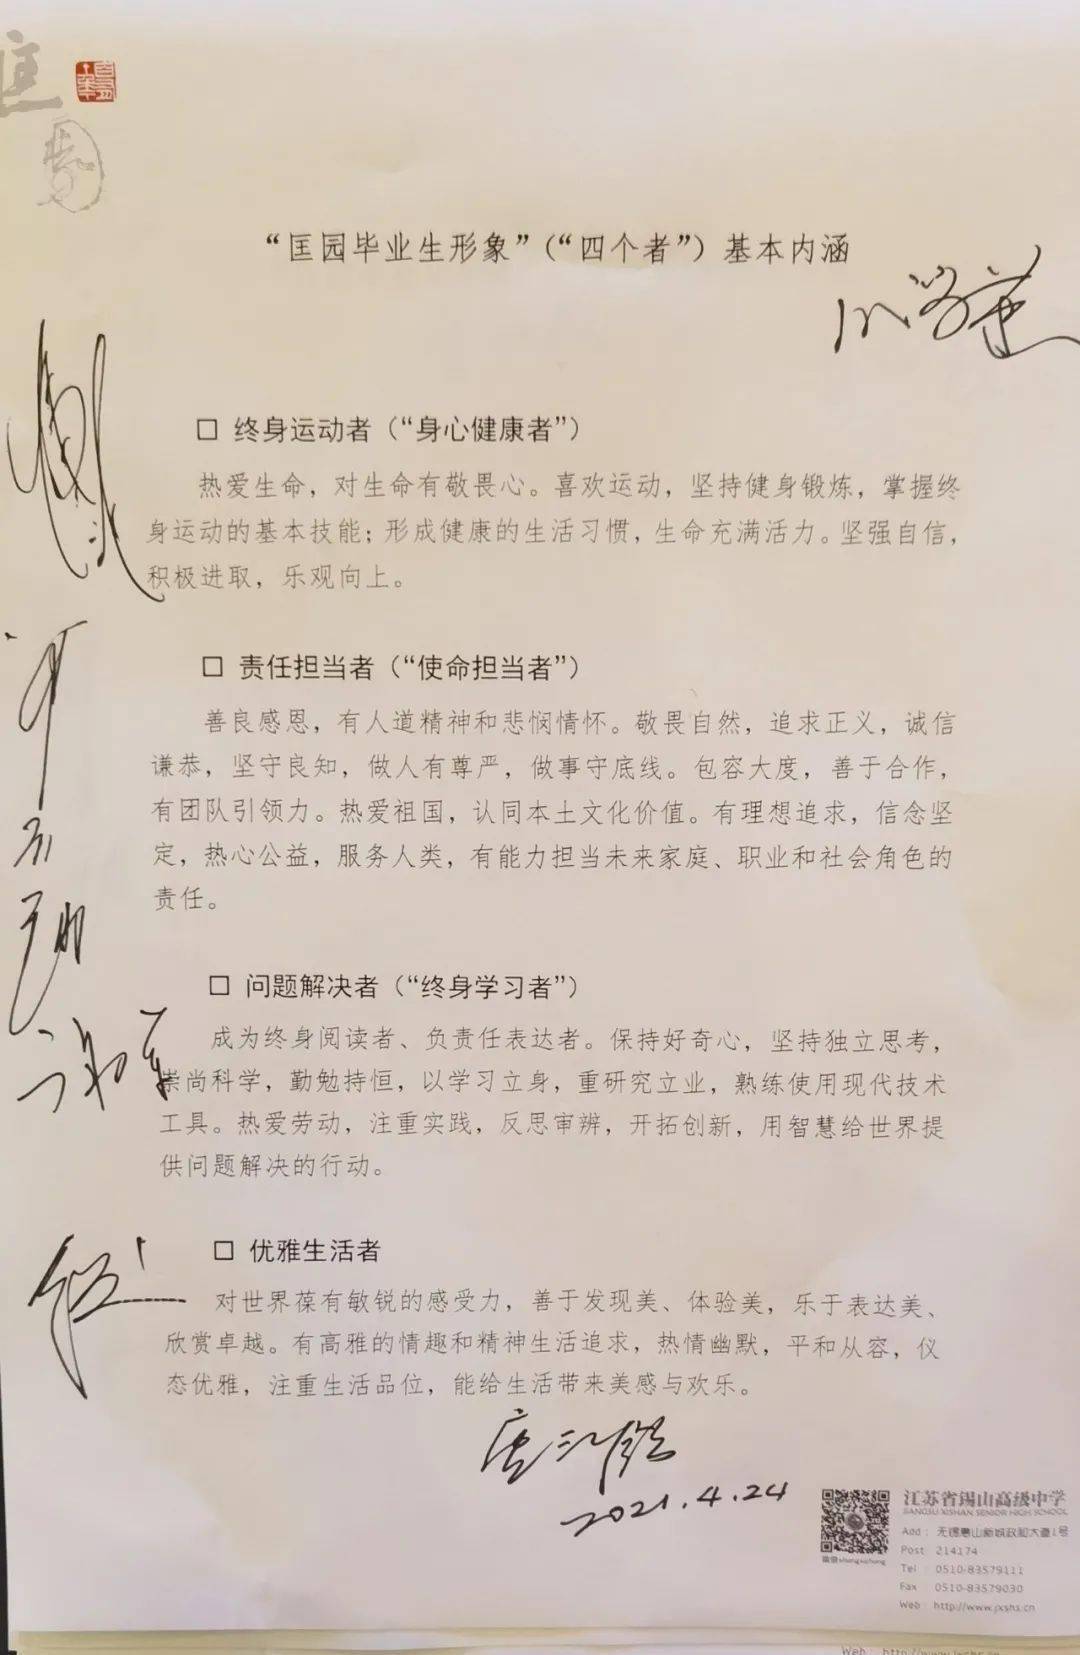 匡园
“匡园毕业生形象”(“四个者”)基本内涵
□ 终身运动者(“身心健康者”)
热爱生命，对生命有敬畏心。喜欢运动，坚持健身锻炼，掌握终
身运动的基本技能；形成健康的生活习惯，生命充满活力。坚强自信，
积极进取，乐观向上。
□ 责任担当者(“使命担当者”)
善良感恩，有人道精神和悲悯情怀。敬畏自然，追求正义，诚信
谦恭，坚守良知，做人有尊严，做事守底线。包容大度，善于合作，
有团队引领力。热爱祖国，认同本土文化价值。有理想追求，信念坚
定，热心公益，服务人类，有能力担当未来家庭、职业和社会角色的
责任。
□ 问题解决者(“终身学习者”)
成为终身阅读者、负责任表达者。保持好奇心，坚持独立思考，
崇尚科学，勤勉持恒，以学习立身，重研究立业，熟练使用现代技术
工具。热爱劳动，注重实践，反思审辨，开拓创新，用智慧给世界提
供问题解决的行动。
□ 优雅生活者
对世界葆有敏锐的感受力，善于发现美、体验美，乐于表达美、
欣赏卓越。有高雅的情趣和精神生活追求，热情幽默，平和从容，仪
态优雅，注重生活品位，能给生活带来美感与欢乐。
唐江澎
2021.4.24
江苏省锡山高级中学
JIANGSU XISHAN SENIOR HIGH SCHOOL
Add： 无锡惠山新城政和大道1号
Post： 214174
Tel： 0510-83579111
Fax： 0510-83579030
Web： http://www.jxshs.cn